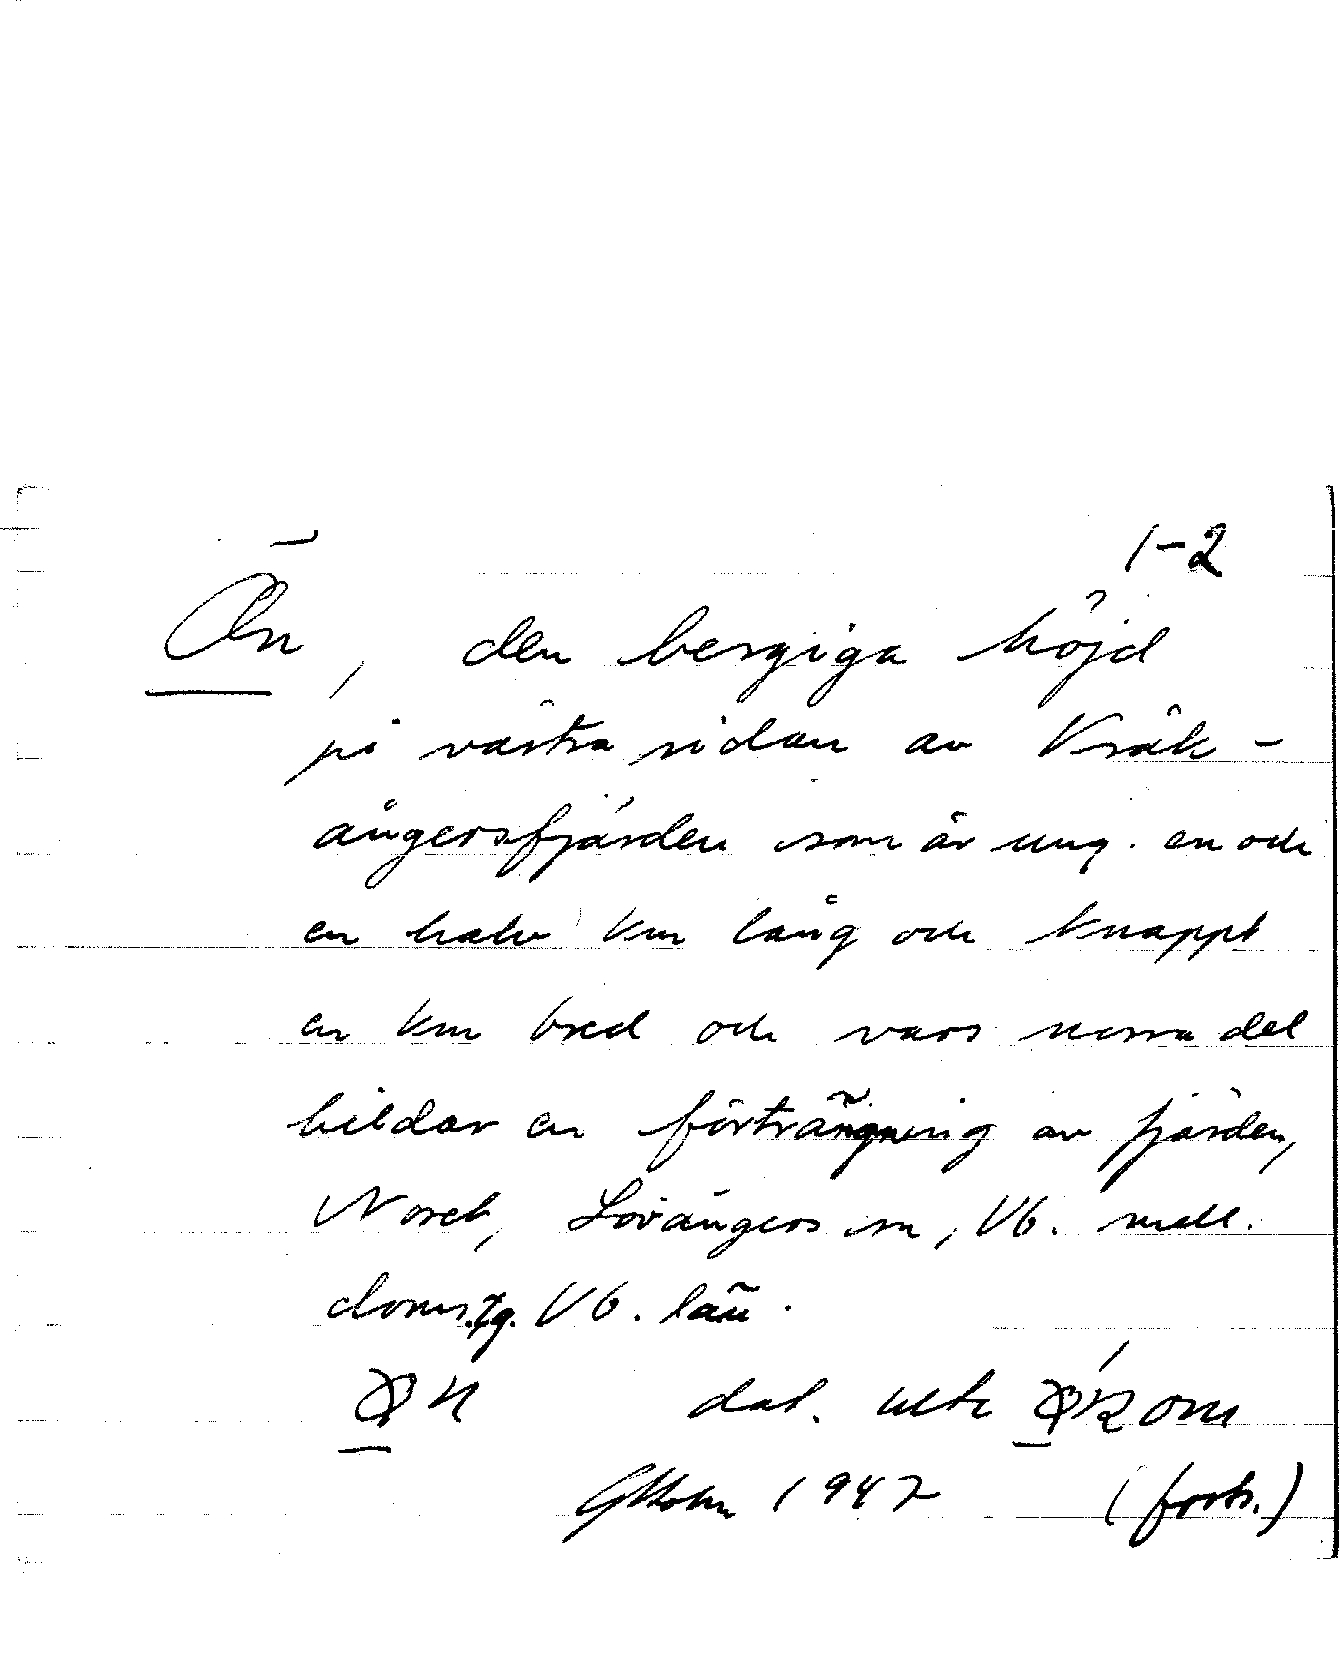 1-2
Ön, den bergiga höjd
på västra sidan av Kråk-
ångersfjärden som är ung. en och
en halv km lång och knappt
en km bred och vars norra del
bildar en förträngning av fjärden,
Noret, Lövångers sn, Vb. mell.
doms.tg. Vb. län.
dat. ute
GHolm 1947 (forts.)